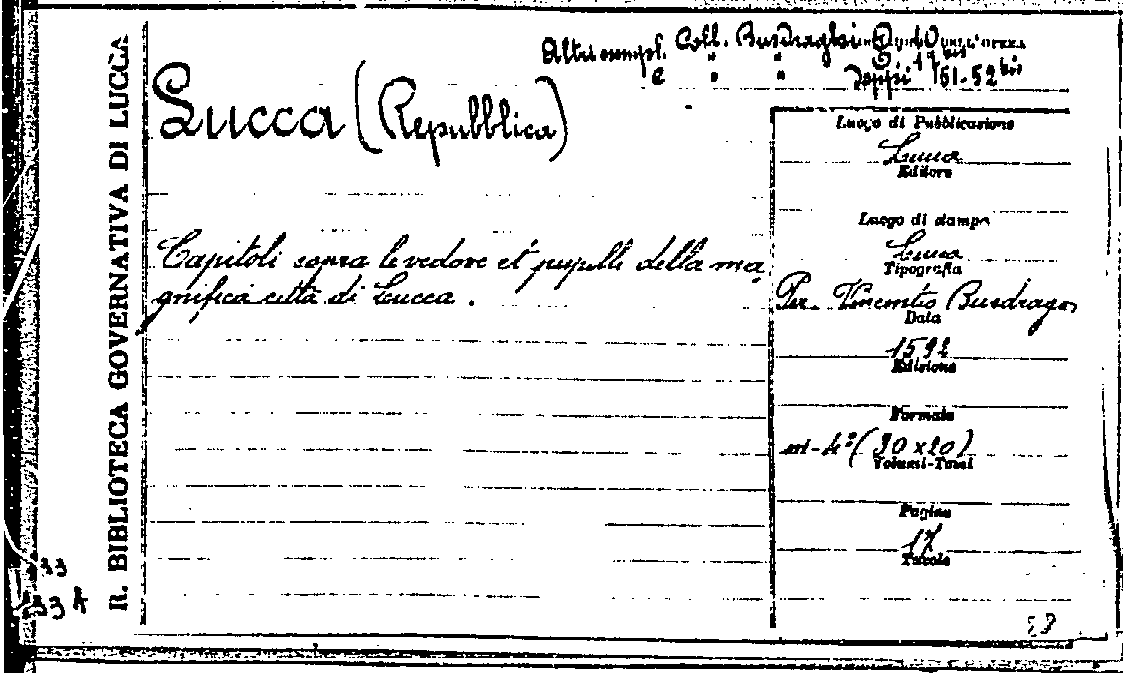 R. BIBLIOTECA GOVERNATIVA DI LUCCA
Altri esempl. Coll. Busdraghi
e " " Doppii 51-52 bis
Lucca (Repubblica)
Capitoli sopra le vedove et pupilli della ma
gnifica città di Lucca.
Luogo di Pubblicazione
Lucca
Editore
Luogo di stampa
Lucca
Tipografia
Per Vincentio Busdrago
Data
1592
Edizione
Formato
in-4° (30 x 20)
Volumi-Tomi
Pagine
17
Tavole
33
33 A